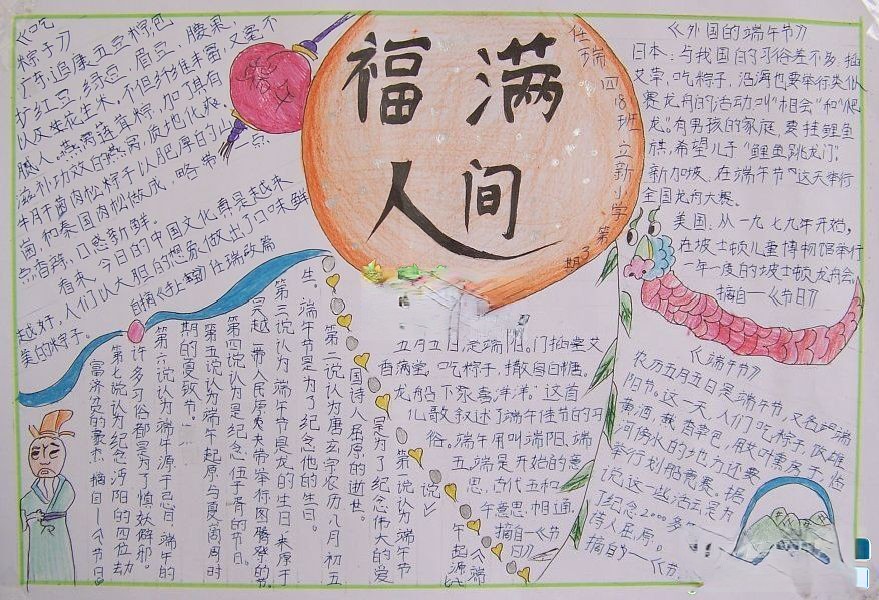 《吃
粽子》
广东追康五豆粽包
扩红豆、绿豆、眉豆、腰果,
以及生花生米。不但纤维丰富,又毫不
腻人。燕窝莲茸粽,加了具有
滋补功效的燕窝,质地化爽。
牛肝干菌肉松粽子以肥厚的山
菌和泰国肉松做成,略带一点
点香辣,口感新鲜。
看来,今日的中国文化真是越来
越好,人们以大胆的想象做出了口味鲜
美的粽子。
福满
人间
任瑞 四8班 立新小学 第3期
《外国的端午节》
日本:与我国的习俗差不多,插
艾草,吃粽子,沿海也要举行类似
赛龙舟的活动叫“相会”和“爬
龙。”有男孩的家庭,要挂鲤鱼
旗,希望儿子“鲤鱼跳龙门”。
新加坡、在端午节“这天举行
全国龙舟大赛。
美国:从一九七九年开始,
在坡士顿儿童博物馆举行
一年一度的坡士顿龙舟会。
摘自—《节日》
《端午节》
农历五月五日是端午节,又名端
阳节。这一天,人们吃粽子,饮雄
黄酒,戴香草包,用艾叶熏房子,临
河傍水的地方还要
举行划船竞赛。据
说这一些活动是为
了纪念2000多
诗人屈原。
摘自—《节
五月五日,是端阳。门插艾
香满堂,吃粽子,撒白糖。
龙船下水喜洋洋。”这首
儿歌叙述了端午佳节的习
俗。端午用叫端阳、端
五,端是开始的意
思,古代五和
午意思相通。
摘自—《节
日》
《端
午起源七
说》
第一说认为端午节
是为了纪念伟大的爱
国诗人屈原的逝世。
第二说认为唐玄宗农历八月初五
生。端午节是为了纪念他的生日。
第三说认为端午节是龙的生日,来源于
吴越一带人民原始夫带举行图腾祭的节。
第四说认为是纪念伍子胥的节日。
第五说认为端午起原与夏、商、周时
期的夏致节。
第六说认为端午源于忌日,端午的
许多习俗都是为了慎妖辟邪。
第七说认为纪念浔阳的四位劫
富济贫的豪杰。摘自—《节日》